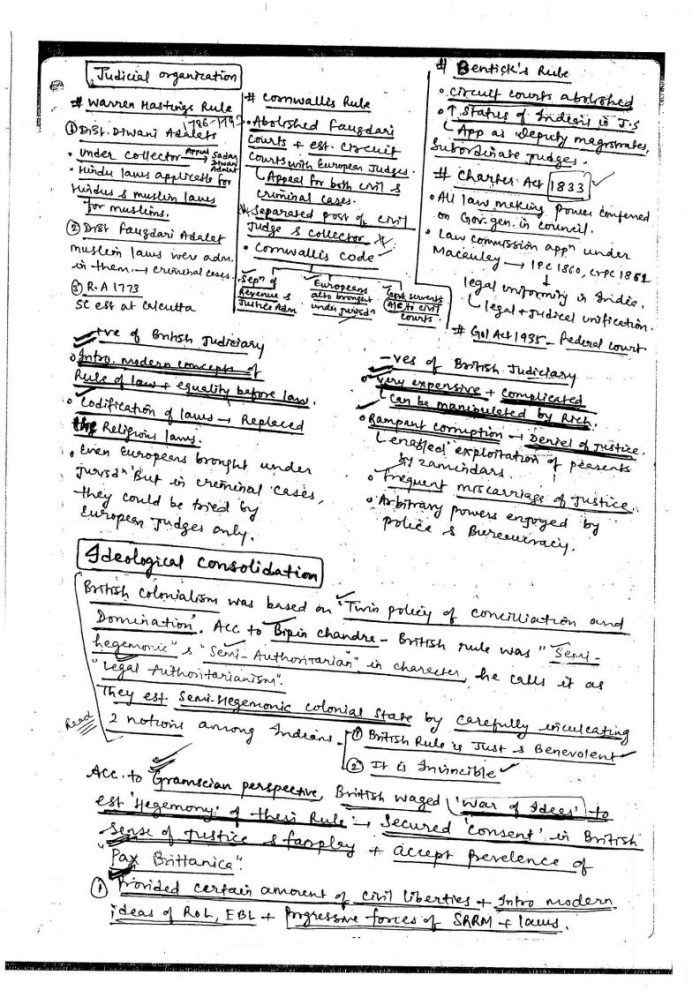 Judicial organization
# Warren Hastings Rule
① Dist. Diwani Adalats
• Under collector → Appeal Sadar Diwani Adalat
• Hindu laws applicable for
Hindus & muslim laws
for muslims.
② Dist Fauzdari Adalat
muslim laws were adm.
in them. → criminal cases.
③ R.A 1773
SC est at Calcutta
# Cornwallis Rule
• Abolished Fauzdari
Courts + est. Circuit
Courts with European Judges.
Appeal for both civil &
criminal cases.
• Separated post of civil
Judge & collector
• Cornwallis Code
• Sepn of
Revenue &
Justice Adm
• Europeans
also brought
under jurisdn
• Govt servants
to civil
courts.
# Bentick's Rule
• Circuit courts abolished
• ↑ Status of Indians in J.S
App as Deputy magistrates,
Subordinate judges.
# Charter Act 1833
• All law making power conferred
on Gov. gen. in council.
• Law commission appn under
Macauley → IPC 1860, CrPC 1861
↓
legal uniformity in India.
legal + Judicial unification.
# GoI Act 1935 - Federal court
+ve of British Judiciary
• Intro. modern concepts of
Rule of law + equality before law.
• Codification of laws → Replaced
the Religious laws.
• Even Europeans brought under
jurisdn But in criminal cases,
they could be tried by
European Judges only.
-ves of British Judiciary
• Very expensive + complicated
Can be manipulated by Rich.
• Rampant corruption → Denial of justice.
enabled exploitation of peasents
by zamindars.
• Frequent miscarriage of Justice.
• Arbitrary powers enjoyed by
police & Bureaucracy.
Ideological consolidation
British colonialism was based on "Twin policy of conciliation and
Domination". Acc to Bipin chandra - British rule was "Semi-
hegemonic" & "Semi-Authoritarian" in character, he calls it as
"Legal Authoritarianism".
They est Semi-Hegemonic colonial state by carefully inculcating
Read
2 notions among Indians. ① British Rule is Just & Benevolent
② It is Invincible
Acc. to Gramscian perspective, British waged 'War of Ideas' to
est 'Hegemony' of their Rule → Secured 'consent' in British
sense of Justice & fairplay + accept prevelence of
"Pax Brittanica".
① Provided certain amount of civil liberties + Intro modern
ideas of RoL, EBL + progressive forces of SRRM + laws.